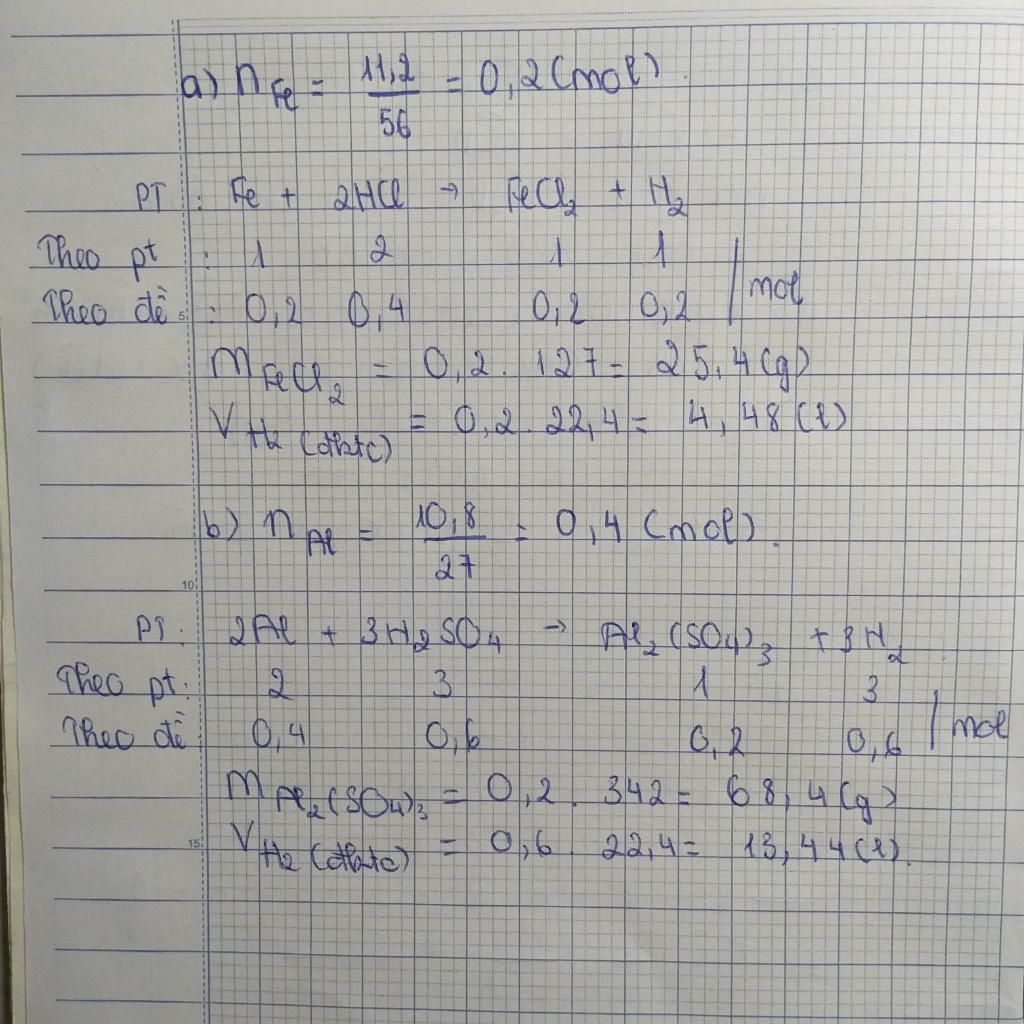 a) n Fe = 11,2 / 56 = 0,2 (mol).
PT : Fe + 2HCl → FeCl₂ + H₂
Theo pt : 1 2 1 1
Theo đề : 0,2 0,4 0,2 0,2 | mol
5
m FeCl₂ = 0,2 . 127 = 25,4 (g)
V H₂ (đktc) = 0,2 . 22,4 = 4,48 (l)
b) n Al = 10,8 / 27 = 0,4 (mol).
10
PT : 2Al + 3H₂SO₄ → Al₂(SO₄)₃ + 3H₂
Theo pt : 2 3 1 3
Theo đề : 0,4 0,6 0,2 0,6 | mol
m Al₂(SO₄)₃ = 0,2 . 342 = 68,4 (g)
15
V H₂ (đktc) = 0,6 . 22,4 = 13,44 (l).